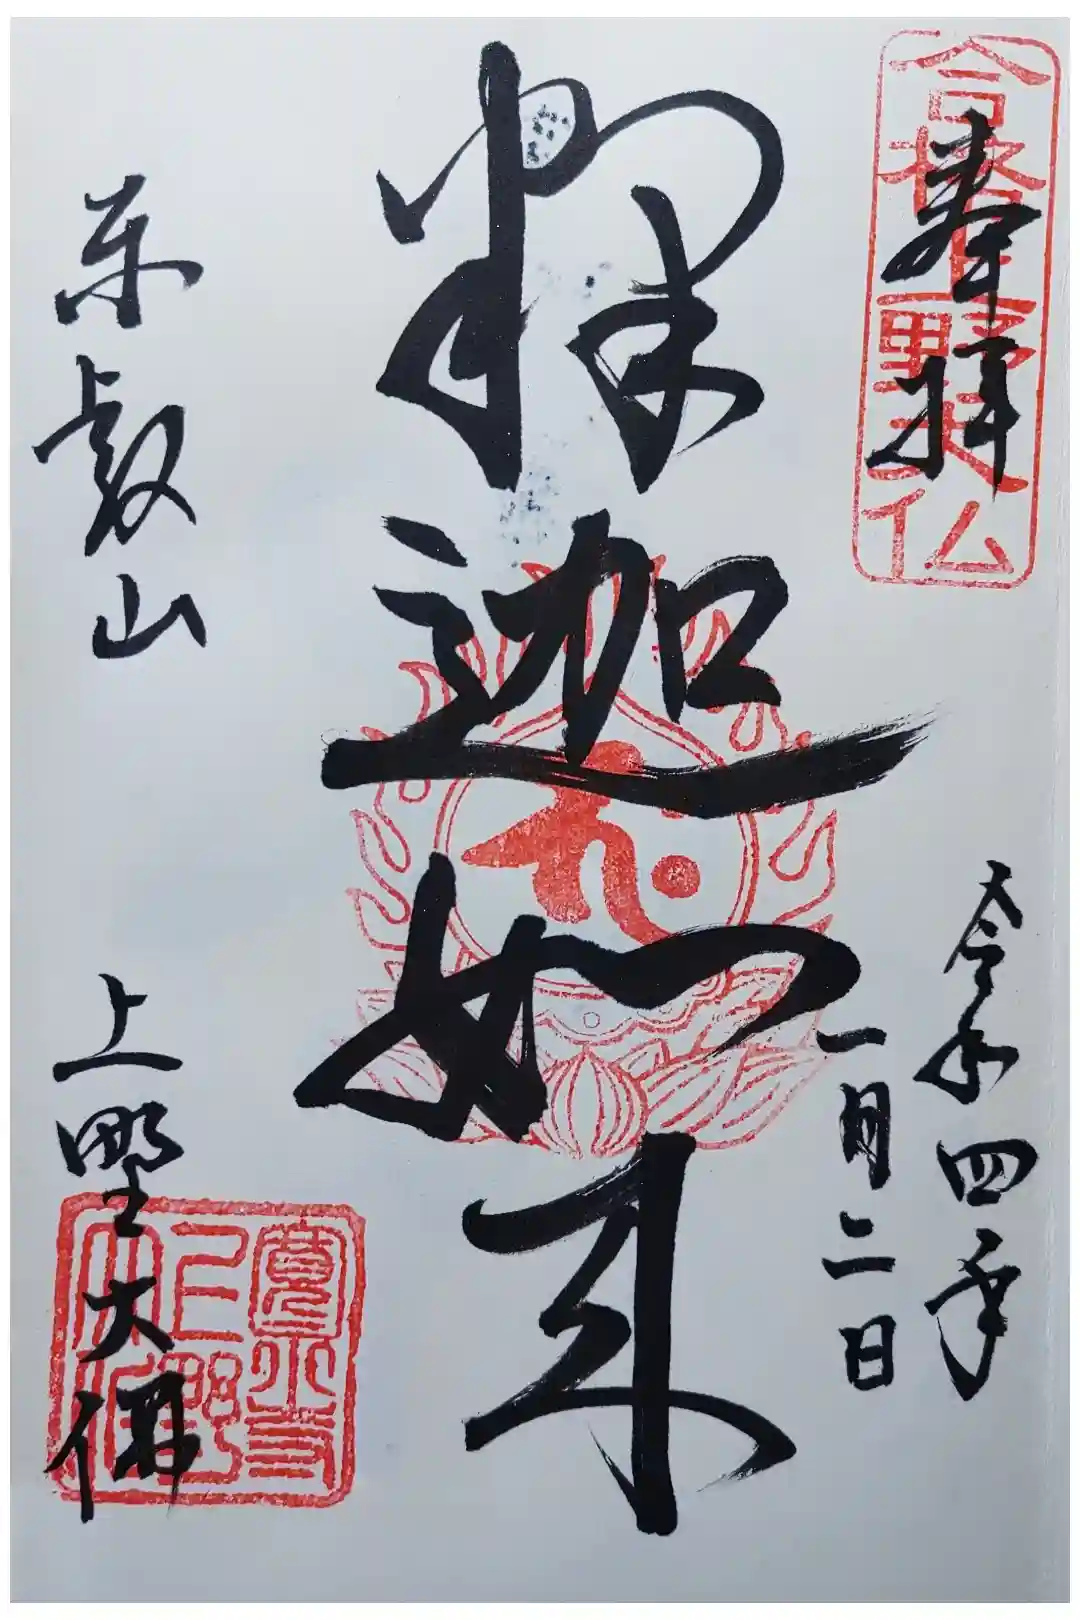 合格上野大仏
奉拝
令和四年
一月二日
釋迦如来
東叡山
上野大佛
寛永寺
上野
大佛